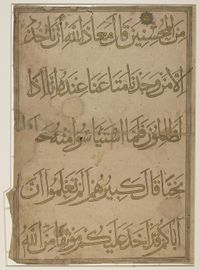 من المحسنين قال معاذ الله ان ناخذ
الا من وجدنا متاعنا عنده انا اذا
لظالمون فلما استيأسوا منه
نجيا قال كبيرهم الم تعلموا ان
اباكم قد اخذ عليكم موثقا من الله